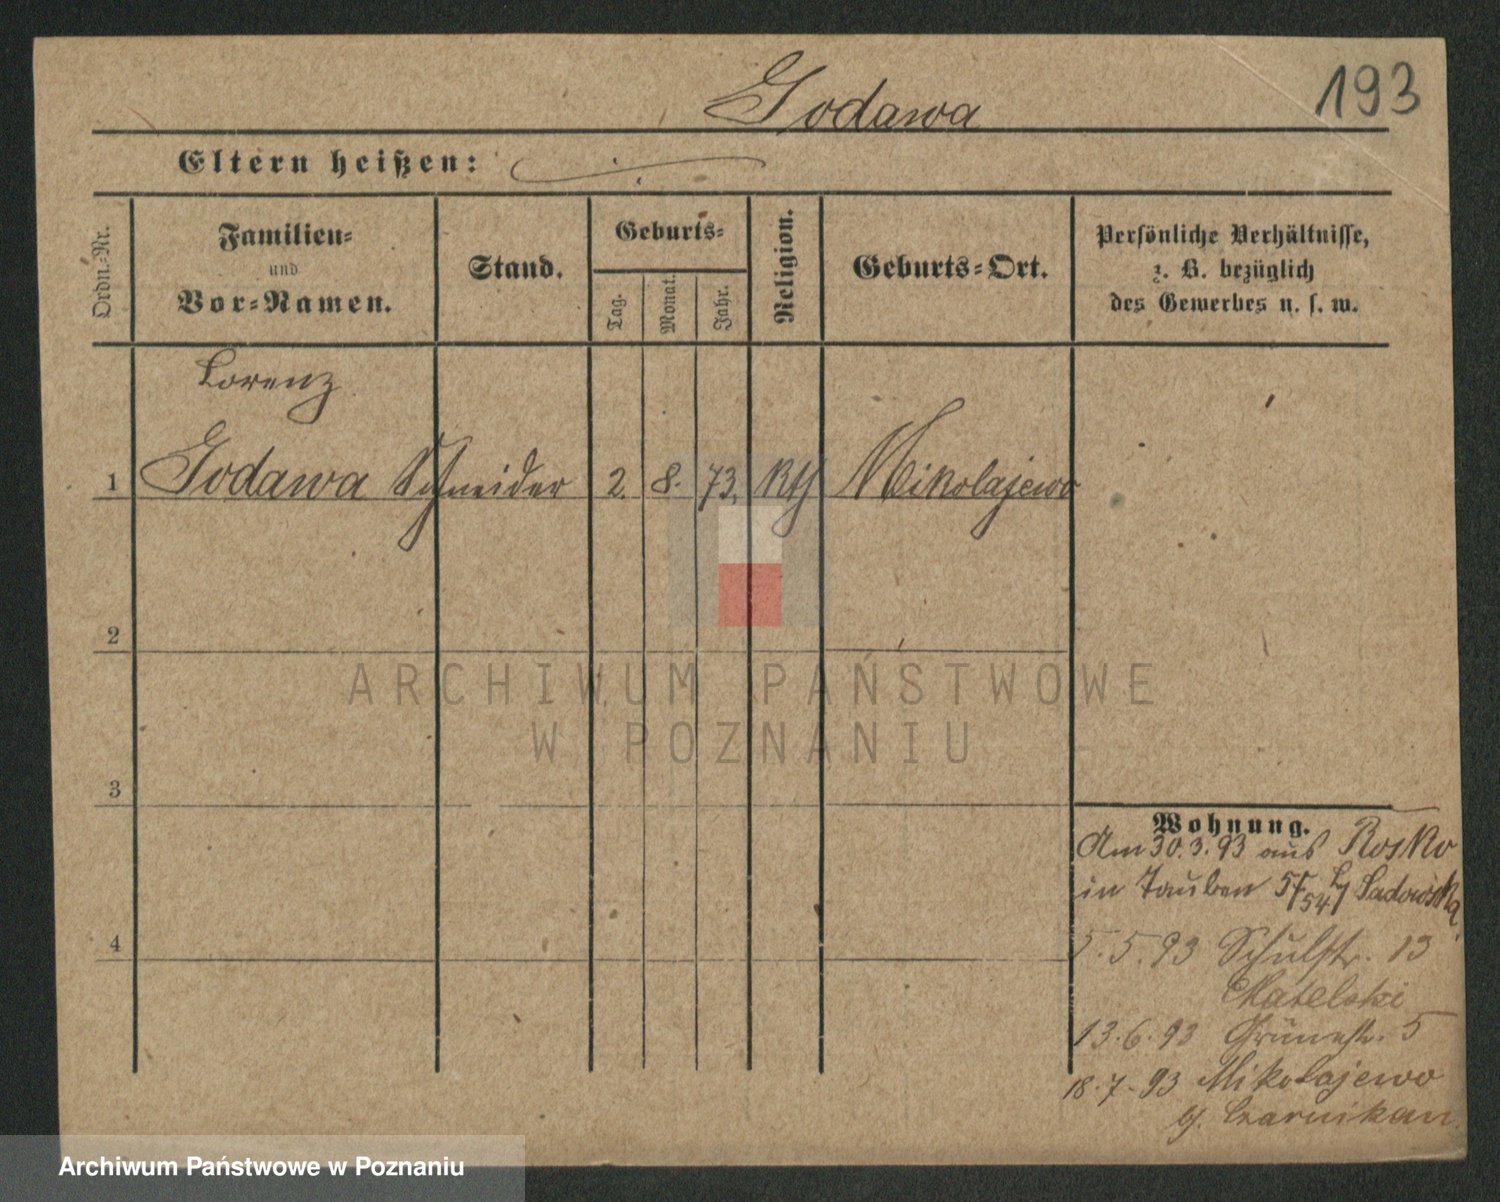 Godawa
193
Eltern heißen:
Ordn.-Nr.
Familien-
und
Vor-Namen.
Stand.
Geburts-
Tag.
Monat.
Jahr.
Religion.
Geburts-Ort.
Persönliche Verhältnisse,
z. B. bezüglich
des Gewerbes u. s. w.
Lorenz
1 Godawa Schneider 2. 8. 73. kth Mikolajewo
2
ARCHIWUM PAŃSTWOWE
W POZNANIU
3
Wohnung.
Am 30.3.93 aus Rosko
in Tauben 5/54
4
5.5.93 Schulstr. 13
13.6.93 Grünestr. 5
18.7.93 Mikolajewo
Czarnikau
Archiwum Państwowe w Poznaniu